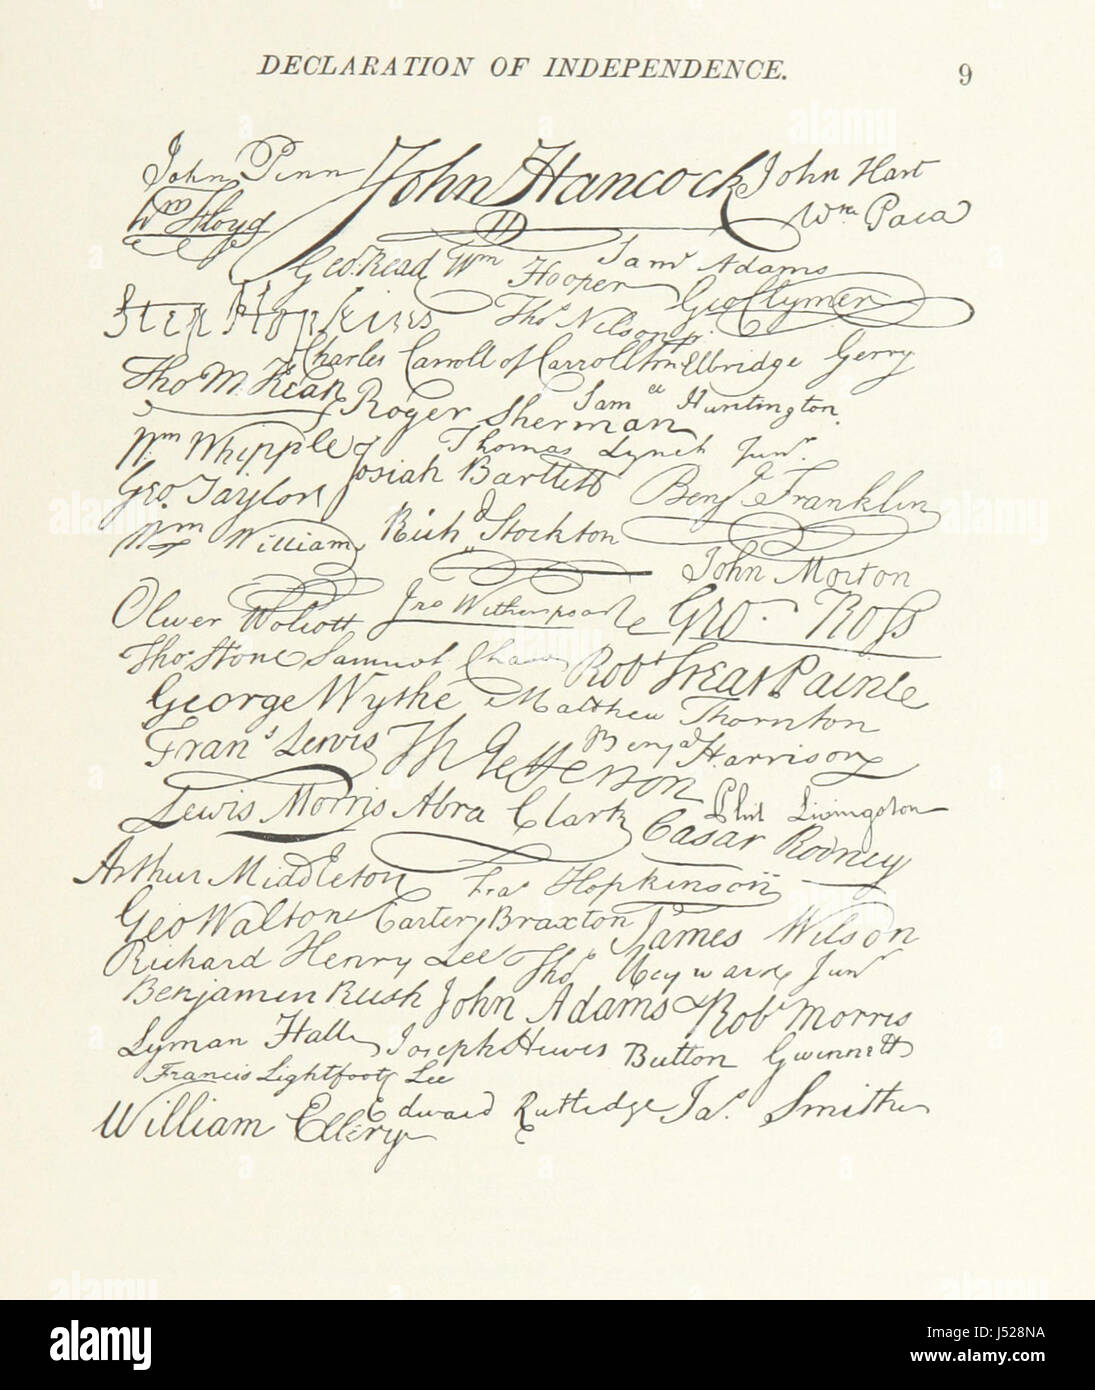 DECLARATION OF INDEPENDENCE. 9
John Penn John Hancock John Hart
Wm Floyd Wm Paca
Geo. Read Wm Hooper Saml Adams
Geo Clymer
Step Hopkins Thos Nelson jr
Charles Carroll of Carrollton Elbridge Gerry
Tho M. Kean Roger Sherman Saml Huntington
Wm Whipple Thomas Lynch Junr.
Josiah Bartlett Benj Franklin
Geo. Taylor
Wm William Richd Stockton
John Morton
Oliver Wolcott Jno Witherspoon Geo. Ross
Thos Stone Samuel Chase Robt Treat Paine
George Wythe Matthew Thornton
Frans Lewis Th Jefferson Benja Harrison
Lewis Morris Abra Clark Phil Livingston
Casar Rodney
Arthur Middleton Fras Hopkinson
Geo Walton Carter Braxton James Wilson
Richard Henry Lee Thos Heyward Junr
Benjamin Rush John Adams Robt Morris
Lyman Hall Joseph Hewes Button Gwinnett
Francis Lightfoot Lee
William Ellery Edward Rutledge Jas. Smith
alamy
J528NA
www.alamy.com